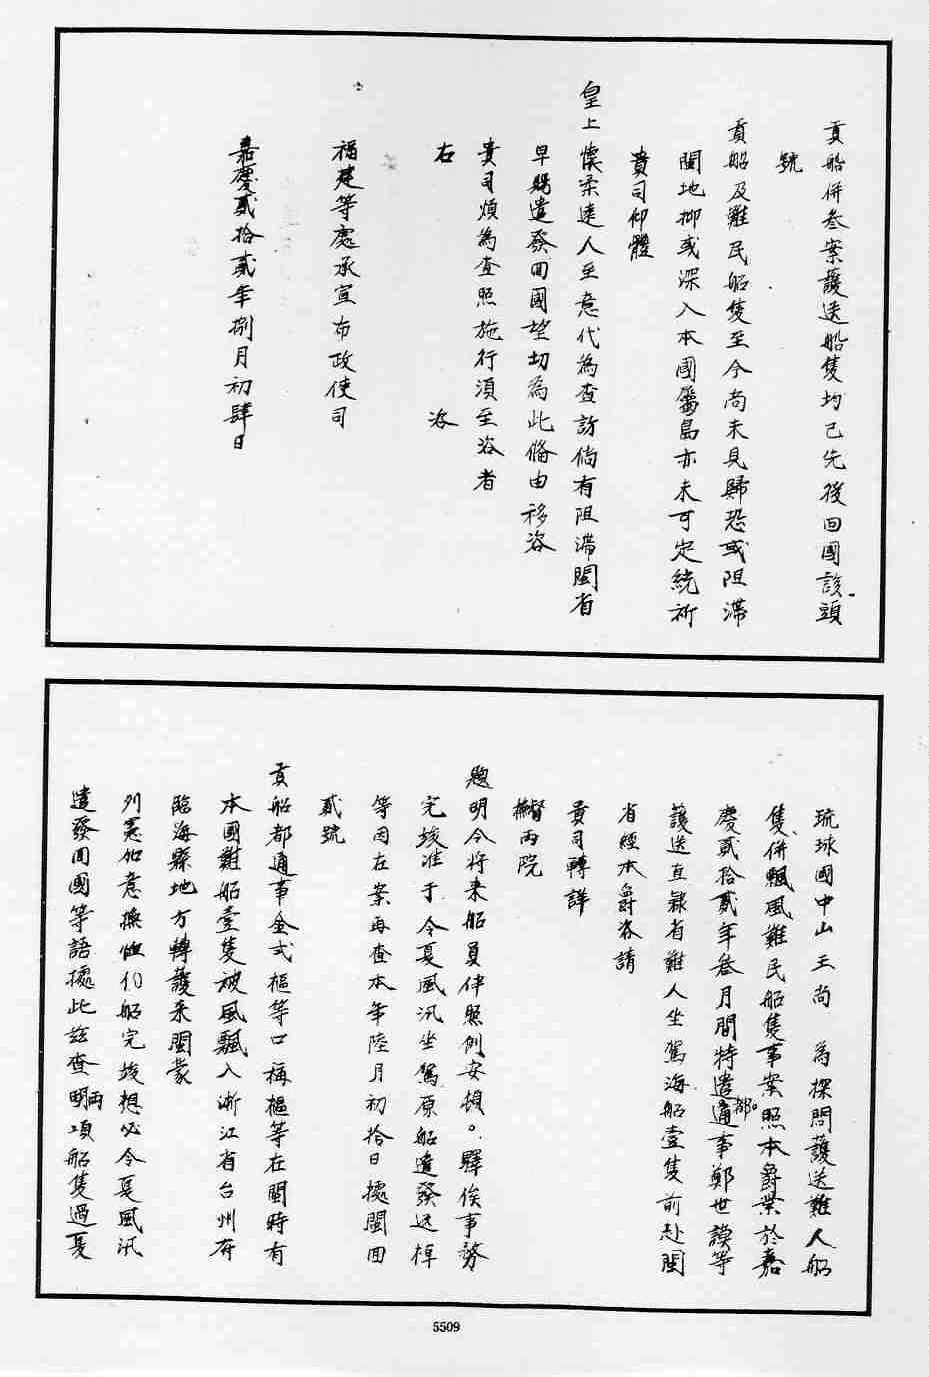 貢船併叁案護送船隻均已先後回國該頭
號
貢船及難民船隻至今尚未見歸恐或阻滯
閩地抑或深入本國屬島亦未可定統祈
貴司仰體
皇上懷柔遠人至意代為查訪倘有阻滯閩省
早賜遣發回國望切為此備由移咨
貴司煩為查照施行須至咨者
右 咨
福建等處承宣布政使司
嘉慶貳拾貳年捌月初肆日
琉球國中山王尚 為探問護送難人船
隻併飄風難民船隻事案照本爵業於嘉
慶貳拾貳年叁月間特遣都通事鄭世謨等
護送直隸省難人坐駕海船壹隻前赴閩
省經本爵咨請
貴司轉詳
督撫兩院
題明令將來船員伴照例安頓。驛俟事務
完竣准于今夏風汛坐駕原船遣發迅棹
等因在案再查本年陸月初拾日據閩回
貳號
貢船都通事金式樞等口稱樞等在閩時有
本國難船壹隻被風飄入浙江省台州府
臨海縣地方轉護來閩蒙
列憲加意撫恤們船完竣想必令夏風汛
遣發回國等語據此茲查明兩項船隻過夏
5509